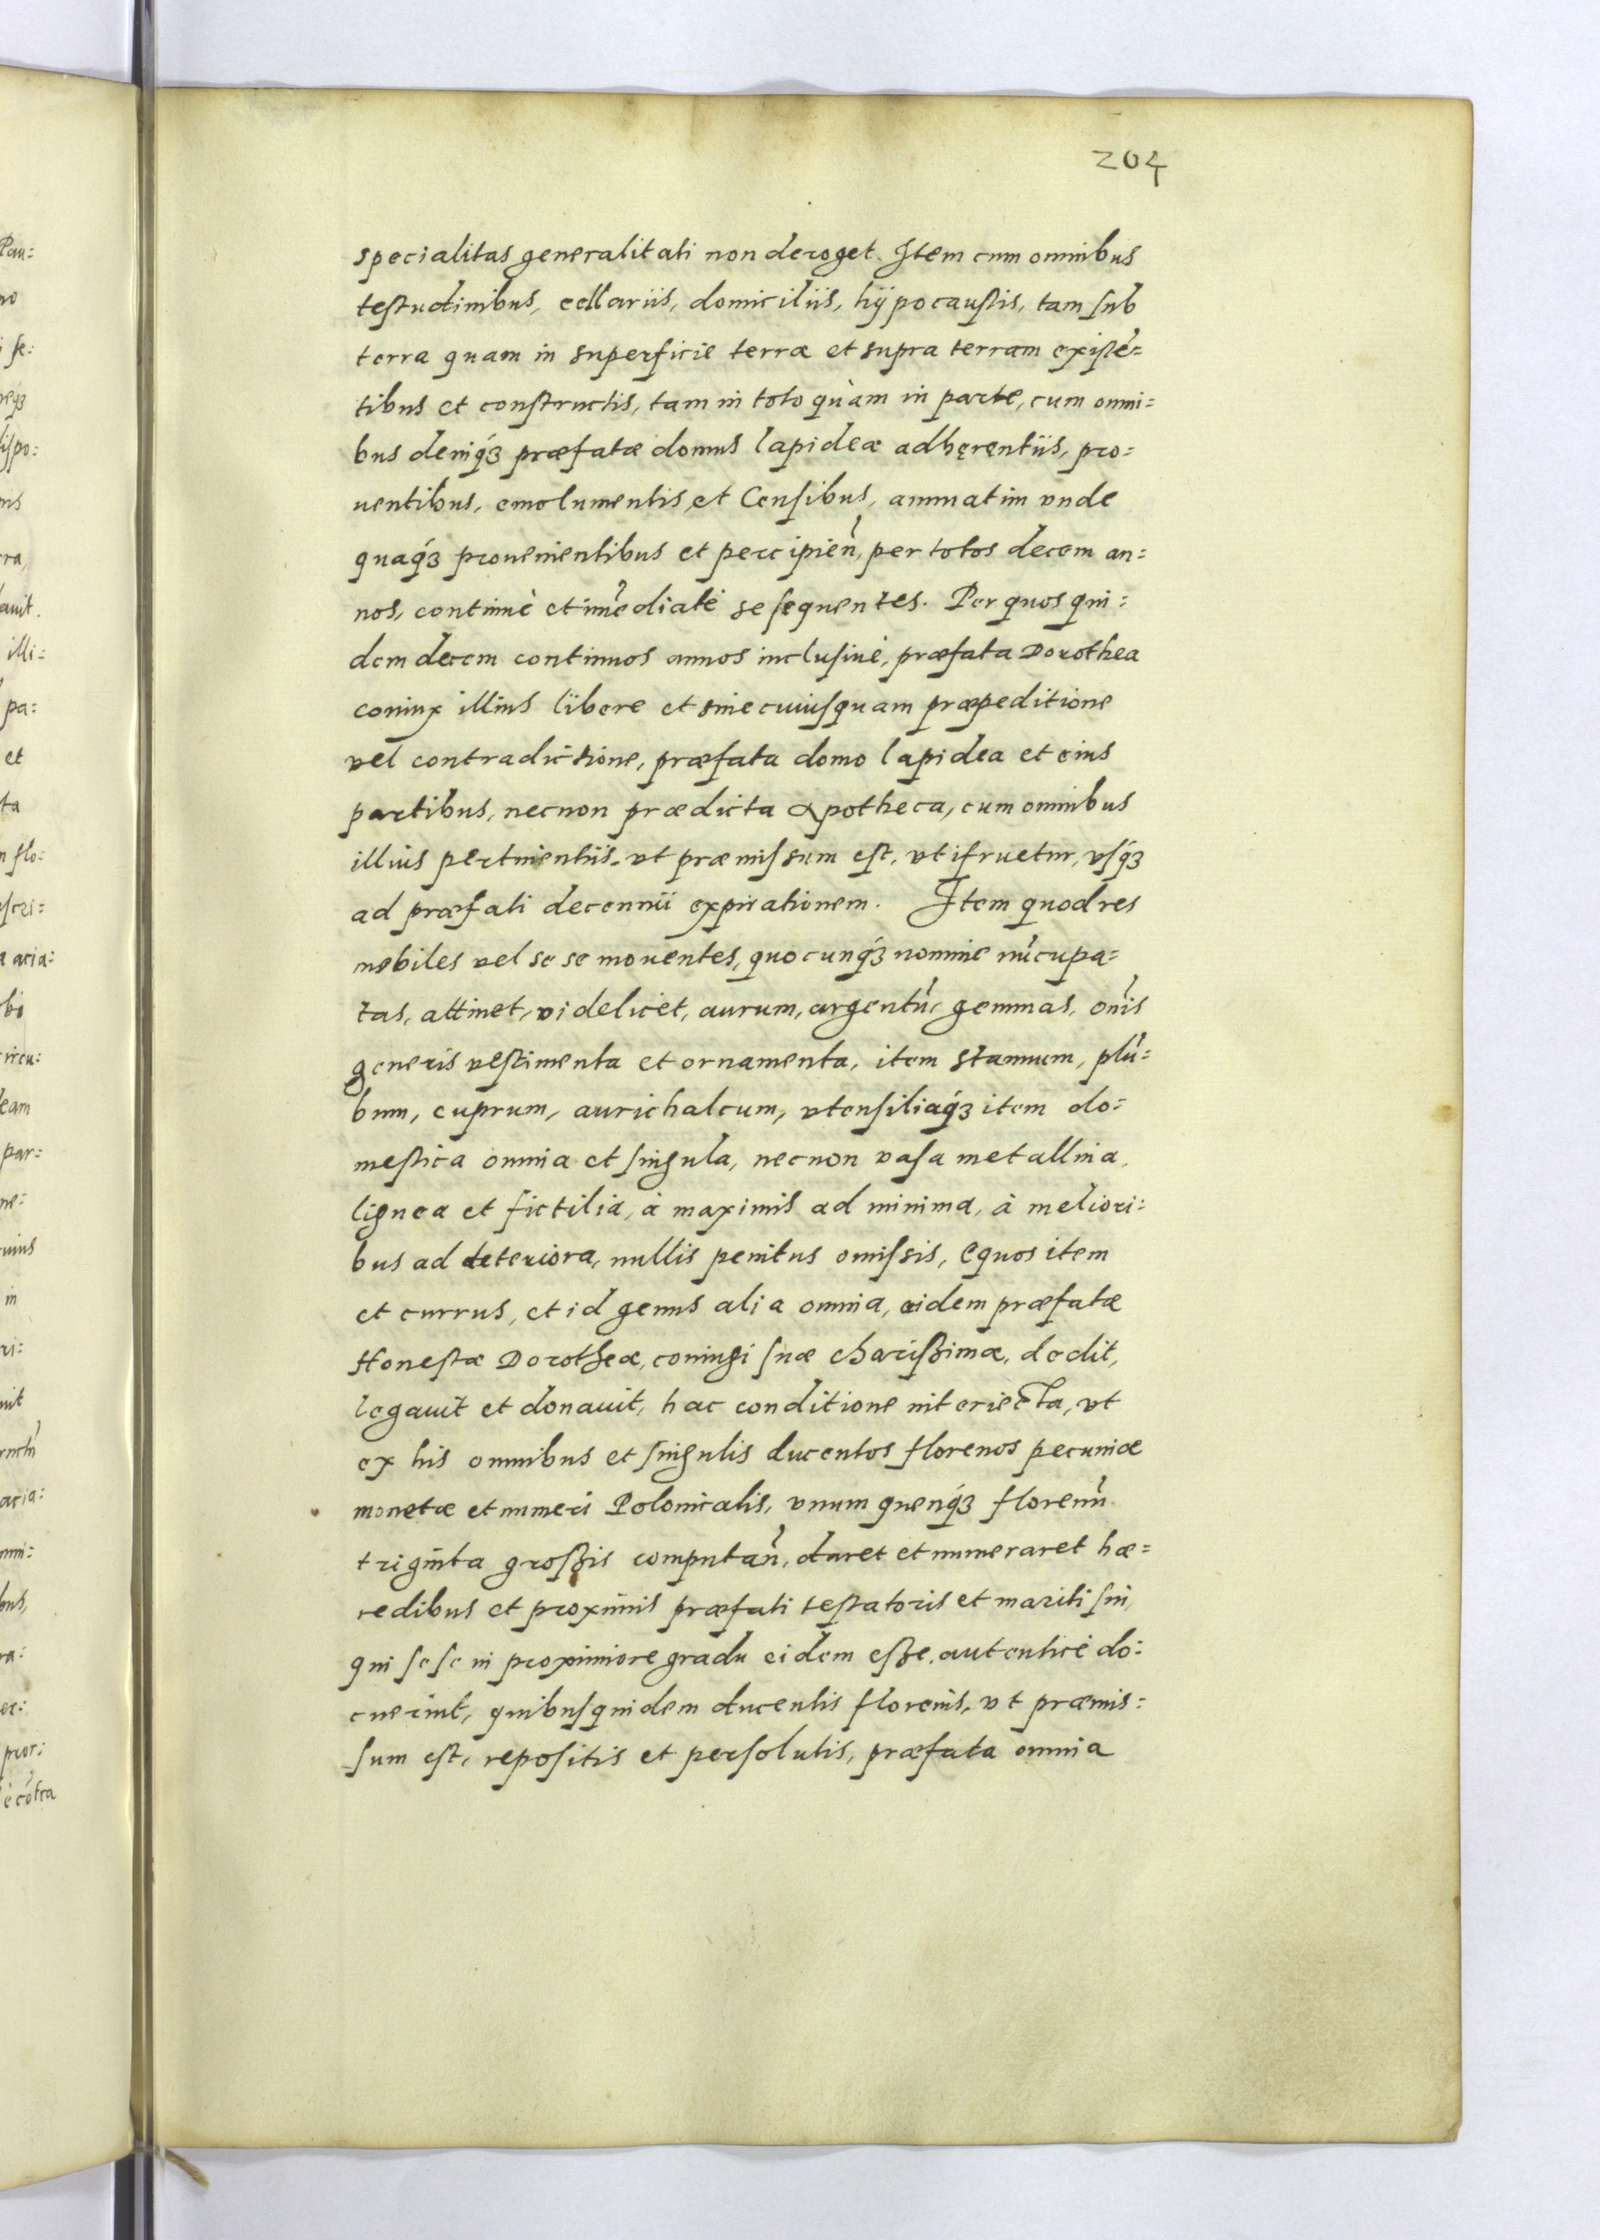 204
specialitas generalitati non deroget. Item cum omnibus
testudinibus, cellariis, domiciliis, hÿpocaustis, tam sub
terra quam in superficie terræ et supra terram existē=
tibus et constructis, tam in toto quàm in parte, cum omni=
bus deniqꝫ præfatæ domus lapideæ adhęrentiis, pro=
uentibus, emolumentis, et Censibus, annuatim vnde
quaqꝫ prouenientibus et percipien̄, per totos decem an=
nos, continuè et im̄ediatè se sequentes. Per quos qui=
dem decem continuos annos inclusiuè, præfata Dorothea
coniux illius libere et sine cuiusquam præpeditione
vel contradictione, præfata domo lapidea et eius
partibus, necnon prædicta Apotheca, cum omnibus
illius pertinentiis, vt præmissum est, vtifruetur, vsqꝫ
ad præfati decennii expirationem. Item quod res
mobiles vel se se mouentes, quocunqꝫ nomine nūcupa=
tas, attinet, videlicet, aurum, argentū, gemmas, om̄is
generis vestimenta et ornamenta, item stannum, plū=
bum, cuprum, aurichalcum, vtensiliaqꝫ item do=
mestica omnia et singula, necnon vasa metallina,
lignea et fictilia, à maximis ad minima, à meliori=
bus ad deteriora, nullis penitus omissis, Equos item
et currus, et id genus alia omnia, eidem præfatæ
Honestæ Dorotheæ, coniugi suæ charißimæ, dedit,
legauit et donauit, hac conditione interiecta, vt
ex his omnibus et singulis ducentos florenos pecuniæ
monetæ et numeri Polonicalis, vnum quenqꝫ florenū
triginta großis computan̄, daret et numeraret hæ=
redibus et proximis præfati testatoris et mariti sui,
qui sese in proximiore gradu eidem eße, autenticè do=
cuerint, quibusquidem ducentis florenis, vt præmis=
sum est, repositis et persolutis, præfata omnia